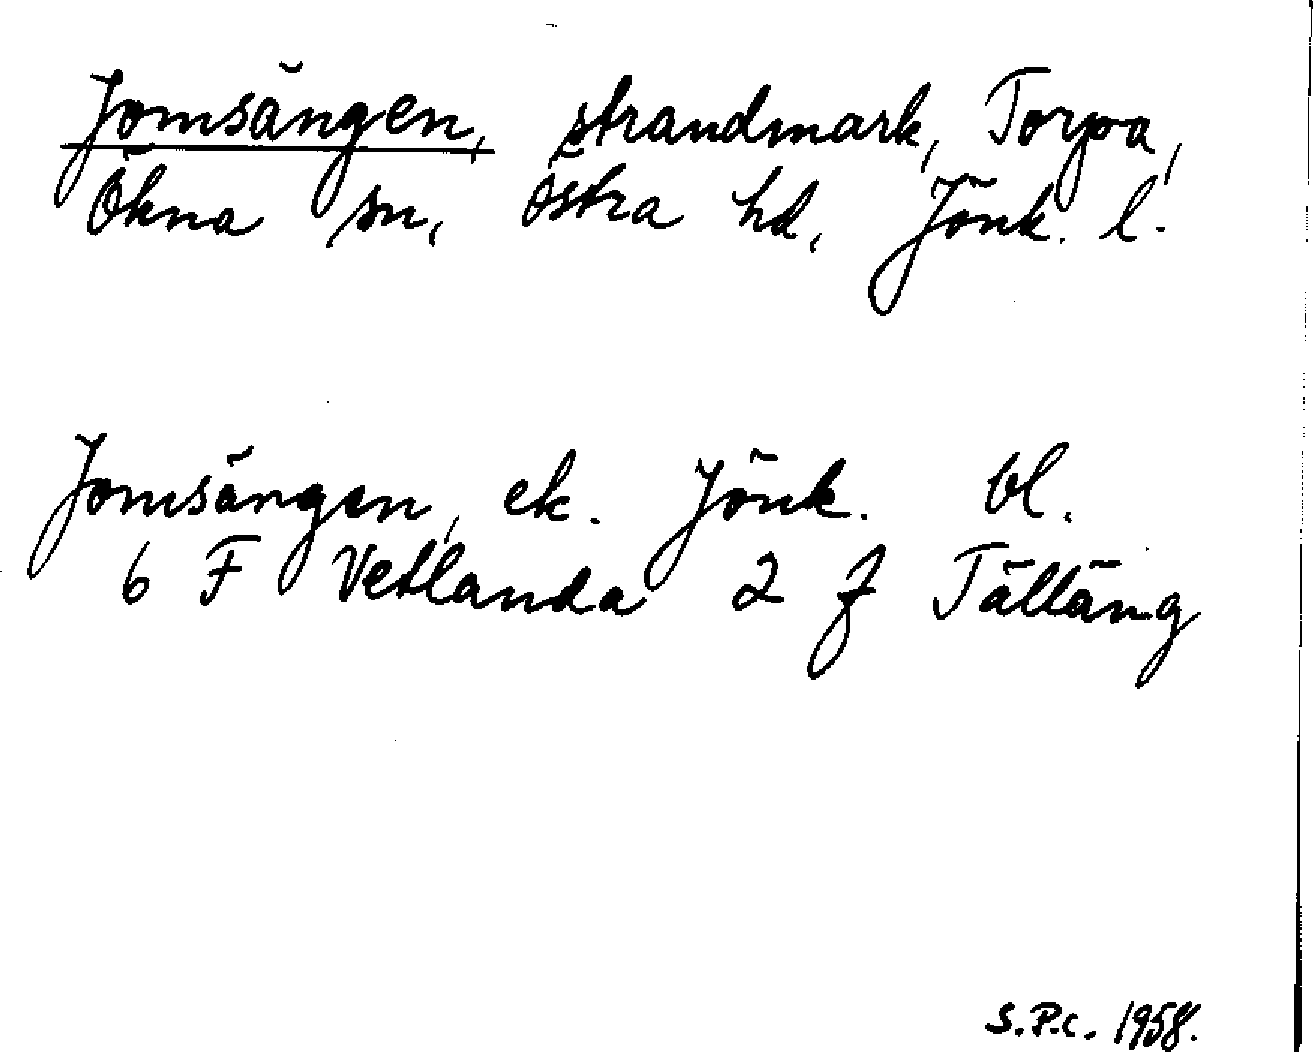 Jomsängen, strandmark, Torpa,
Ökna sn, Östra hd, Jönk. l.
Jomsängen, ek. Jönk. bl.
6 F Vetlanda 2 f Tälläng
S.P.C. 1958.